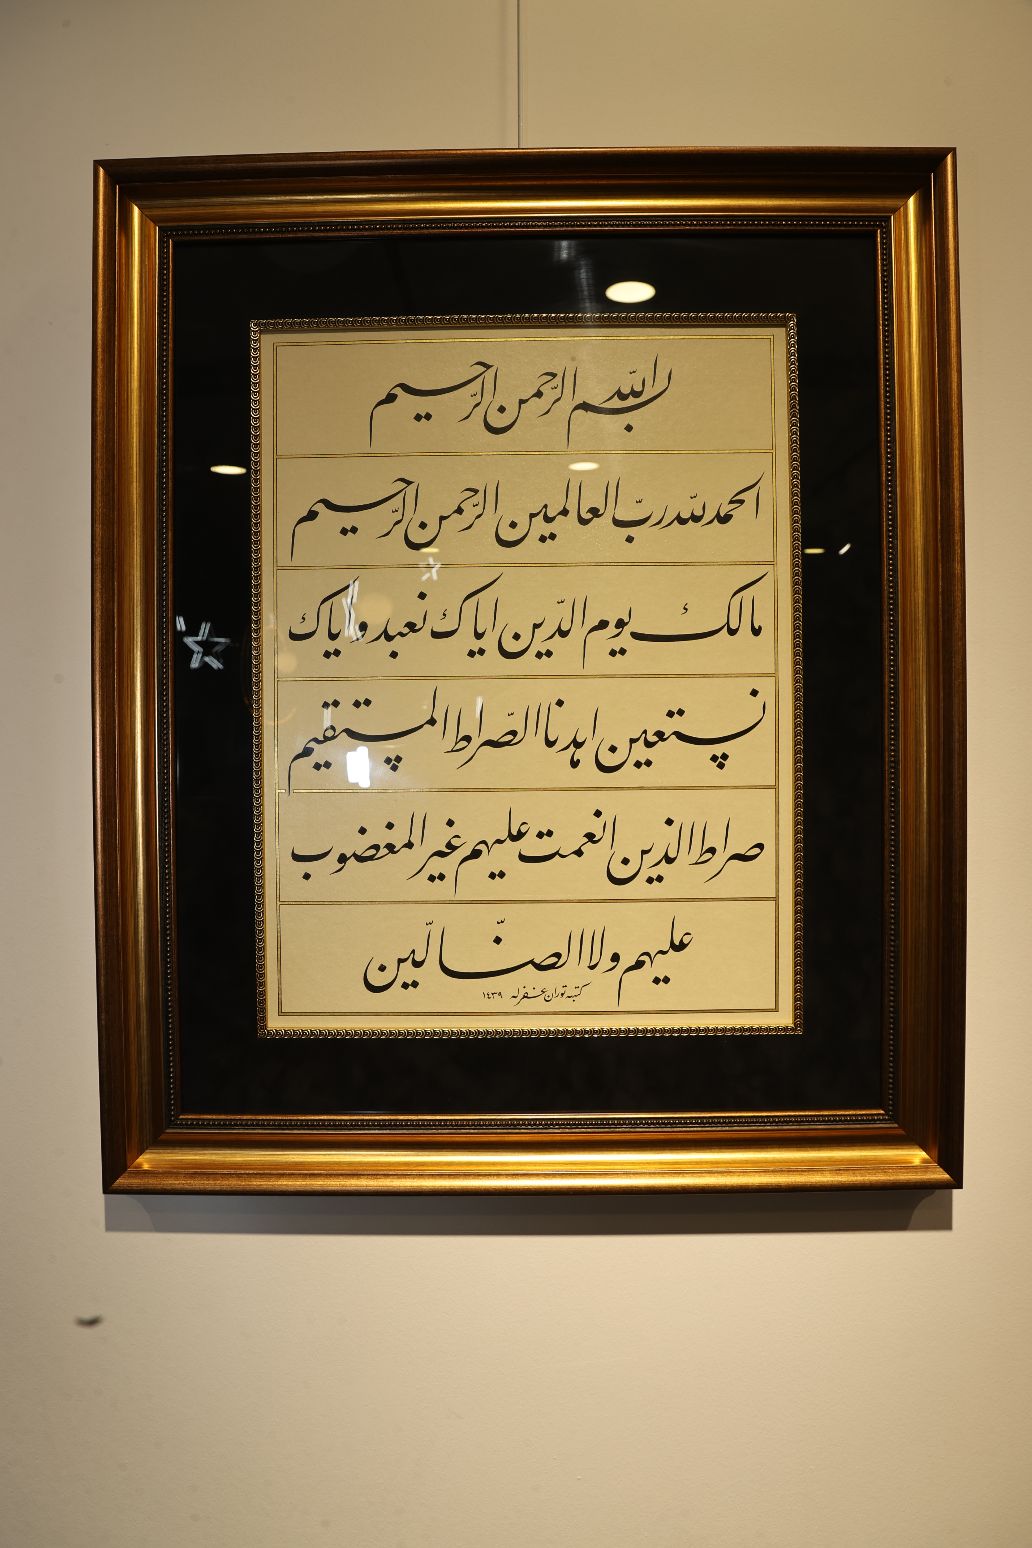 بسم الله الرحمن الرحيم
الحمد لله ربّ العالمين الرّحمن الرّحيم
مالك يوم الدّين اياك نعبد واياك
نستعين اهدنا الصّراط المستقيم
صراط الذين انعمت عليهم غير المغضوب
عليهم ولا الضّالّين
كتبه توران غفرله ١٤٣٩